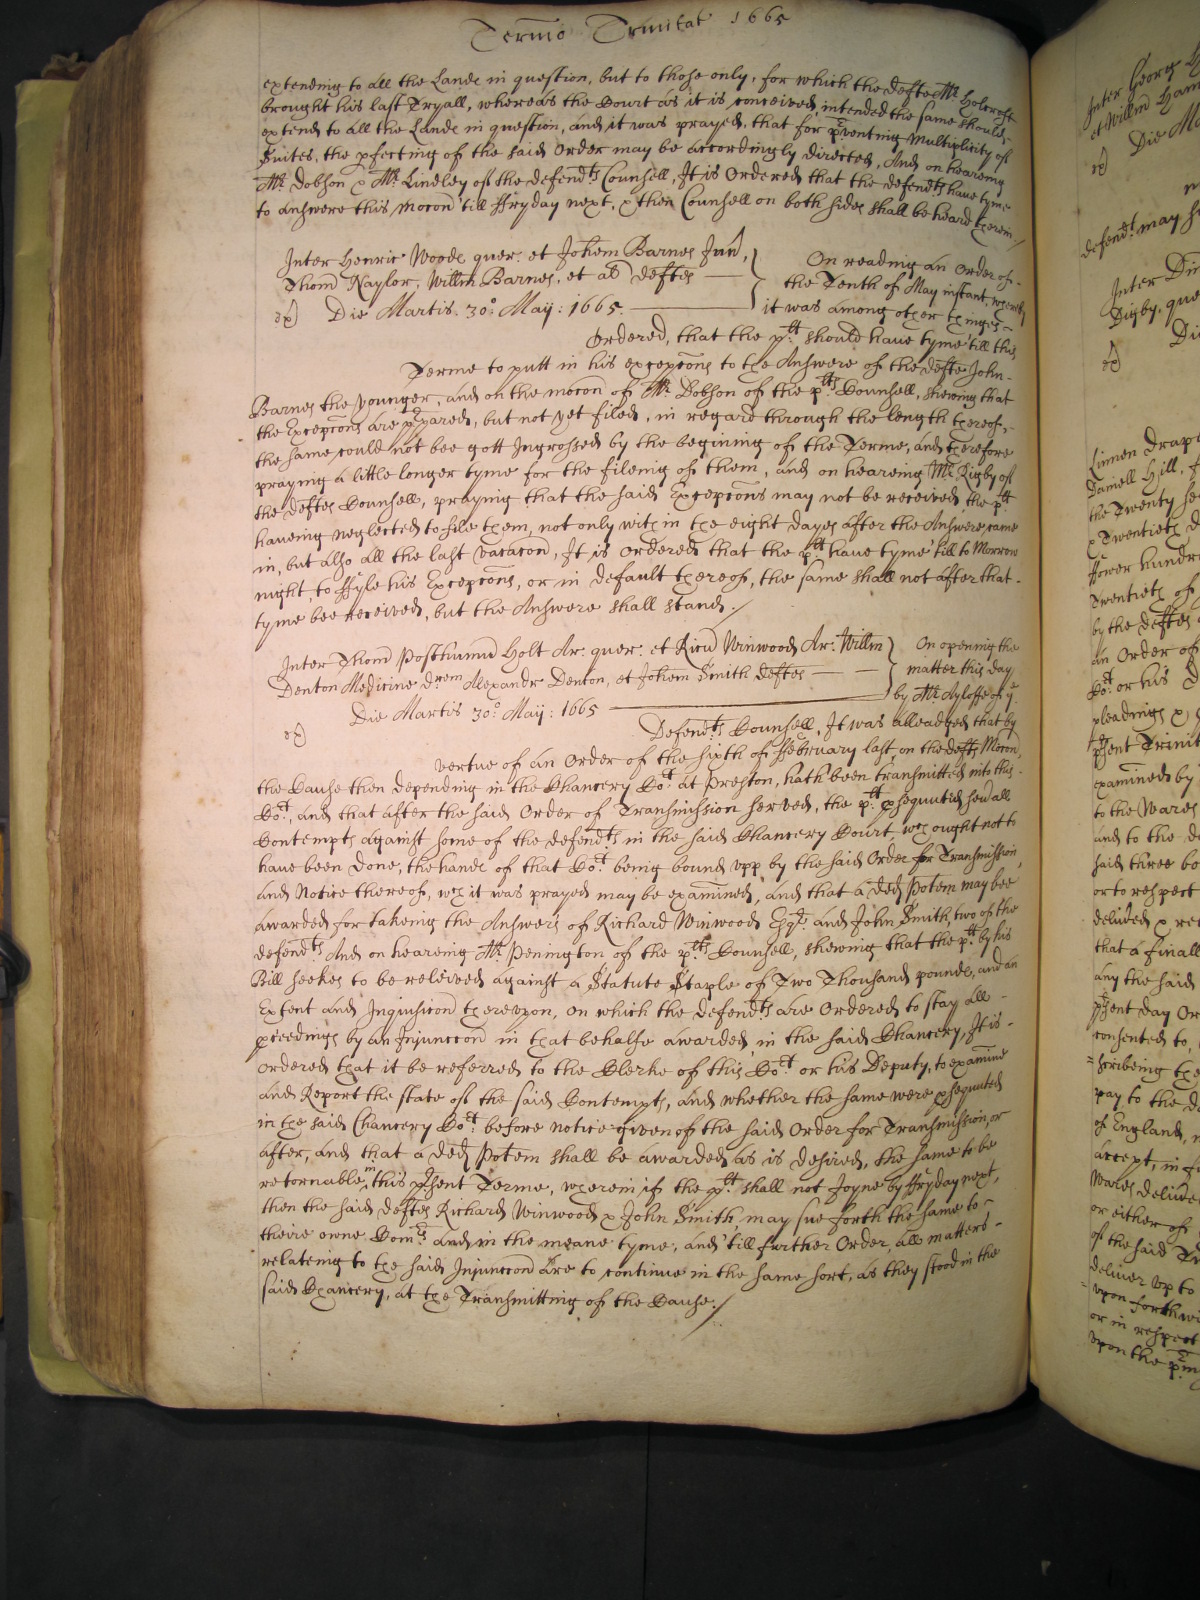 Termo Trinitat 1665
extending to all the Lande in question, but to those only, for which the defte Mr. Holcroft
brought his last Tryall, whereas the Court as it is conceived, intended the same should
extend to all the Lande in question, and it was prayed, that for pventing Multiplicity of
Suites, the pfecting of the said Order may be accordingly directed, And on heareing
Mr. Dobson & Mr. Lindley of the defendts Counsell, It is Ordered that the defendts have tyme
to answere this mocon till ffryday next, & then Counsell on both sides shall be heard therein/
Inter Henric Woode quer. et Johem Barnes Jun,
Thom Naylor, Willm Barnes, et al deftes
ex) Die Martis. 30o. Maij: 1665.
On reading an Order of
the Tenth of May instant, whereby
it was among other thinges
Ordered, that the plt should have tyme till this
Terme to putt in his excepcons to the Answere of the defte John
Barnes the younger, and on the mocon of Mr. Dobson of the plts Counsell, shewing that
the Excepcons are ppared, but not yet filed, in regard through the length thereof,
the same could not bee gott Ingrossed by the begining of the Terme, and therefore
praying a little longer tyme for the fileinig of them, and on heareing Mr. Rigby of
the deftes Counsell, praynig that the said Excepcons may not be received, the plt
haveing neglected to file them, not only with in the eight dayes after the Answere came
in, but also all the last vacacon, It is Ordered that the plt have tyme till to Morrow
night, to ffyle his Excepcons, or in default thereof, the same shall not after that
tyme bee received, but the Answere shall stand./
Inter Thom Posthumu Holt Ar. quer. et Ricu Winwood Ar. Willm
Denton Medicine drem Alexandr Denton, et Johem Smith deftes
Die Martis 30o. Maij: 1665
ex)
On opening the
matter this day
by Mr. Ayloffe of ye
Defendts Counsell, It was alleadged that by
vertue of an Order of the sixth of ffebruary last on the defts Mocon,
the Cause then depending in the Chancery Cot. at Preston, hath been transmitted into this
Cot., and that after the said Order of Transmission served, the plt psequuted sevall
Contempts against some of the defendts in the said Chancery Court, wch ought not to
have been done, the hande of that Cot. being bound upp by the said Order for Transmission,
and Notice thereof, wch it was prayed may be examined, and that a ded Potem may bee
awarded for takeing the Answers of Richard Winwood Esqr. and John Smith, two of the
defendts And on heareing Mr. Penington of the plts Counsell, shewing that the plt. by his
Bill seekes to be releived against a Statute Staple of Two Thousand pounde, and an
Extent and Inquisicon thereupon, on which the defendts are Ordered to stay all
pceedings by an Injunccon in that behalfe awarded, in the said Chancery, It is
ordered that it be referred to the Clerke of this Cot. or his Deputy, to examine
and Report the state of the said Contempts, and whether the same were psequuted
in the said Chancery Cot. before notice given of the said Order for Transmission, or
after, and that a ded Potem shall be awarded as is desired, the same to be
retornable in this psent Terme, wherein if the plt. shall not Joyne by ffryday next,
then the said deftes Richard Winwood & John Smith, may sue forth the same to
theire owne Comrs. and in the meane tyme, and till further Order, all matters
relateing to the said Injunccon are to continue in the same sort, as they stood in the
said Chancery, at the Transmitting of the Cause./
Inter Georg
et Willm Ham
Die Ma
ex)
defendt may
Inter
Digby, que
Di
ex)
Linnen Drap
Daniell Hill,
the Twenty
& Twentieth
ffower hundr
Twentieth of
by the deftes
an Order of
Cot. or his D
pleadings &
psent Trinit
examined by
to the Wares
and to the d
said three bo
or to respect
delivered & re
that a finall
any the said
psent day Or
consented to,
scribeing the
pay to the d
of England,
accept, in f
Wares delive
or either of
of the said Tr
deliver up to
upon forthwi
or in respect
upon the